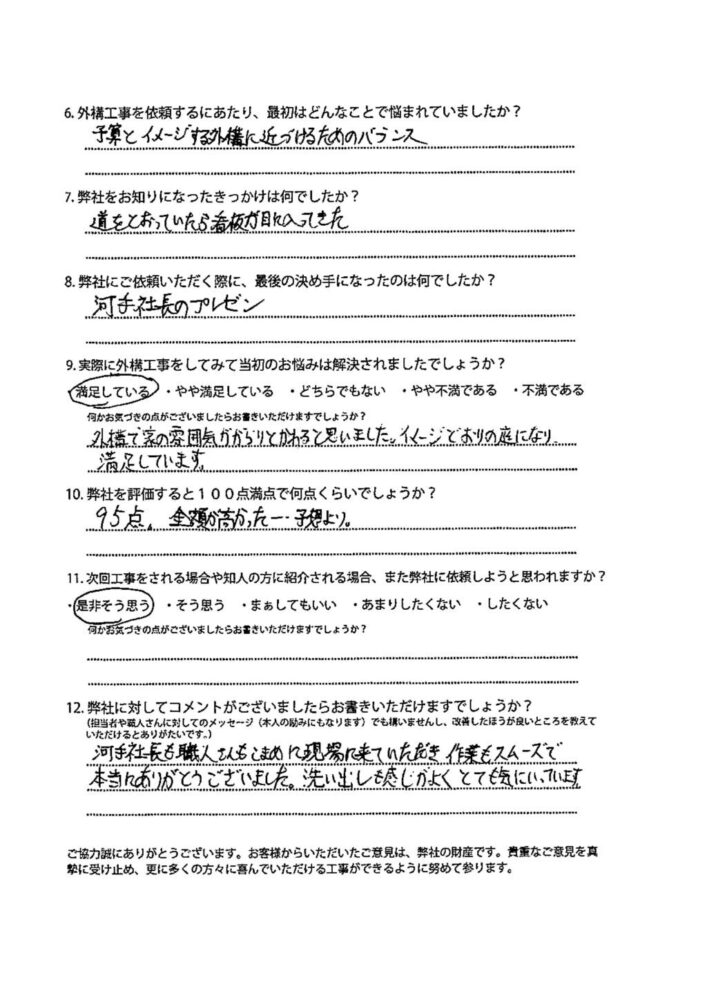 6. 外構工事を依頼するにあたり、最初はどんなことで悩まれていましたか？
予算とイメージする外構に近づけるためのバランス
7. 弊社をお知りになったきっかけは何でしたか？
道をとおっていたら看板が目に入ってきた
8. 弊社にご依頼いただく際に、最後の決め手になったのは何でしたか？
河手社長のプレゼン
9. 実際に外構工事をしてみて当初のお悩みは解決されましたでしょうか？
・満足している ・やや満足している ・どちらでもない ・やや不満である ・不満である
何かお気づきの点がございましたらお書きいただけますでしょうか？
外構で家の雰囲気ががらりとかわると思いました。イメージどおりの庭になり
満足しています。
10. 弊社を評価すると１００点満点で何点くらいでしょうか？
95点。金額が高かった…予想より。
11. 次回工事をされる場合や知人の方に紹介される場合、また弊社に依頼しようと思われますか？
・是非そう思う ・そう思う ・まぁしてもいい ・あまりしたくない ・したくない
何かお気づきの点がございましたらお書きいただけますでしょうか？
12. 弊社に対してコメントがございましたらお書きいただけますでしょうか？
（担当者や職人さんに対してのメッセージ（本人の励みにもなります）でも構いませんし、改善したほうが良いところを教えて
いただけるとありがたいです。）
河手社長も職人さんもこまめに現場に来ていただき作業もスムーズで
本当にありがとうございました。洗い出しも感じがよくとても気にいっています
ご協力誠にありがとうございます。お客様からいただいたご意見は、弊社の財産です。貴重なご意見を真
摯に受け止め、更に多くの方々に喜んでいただける工事ができるように努めて参ります。